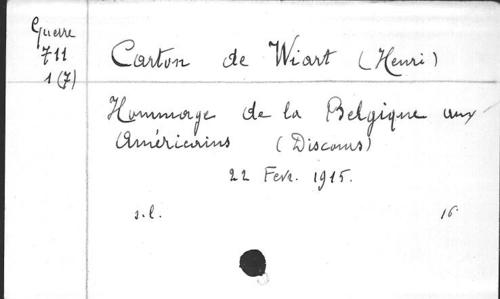 Guerre
711
1 (7)
Carton de Wiart (Henri)
Hommage de la Belgique aux
Américains (Discours)
22 Fevr. 1915.
s.l.
16